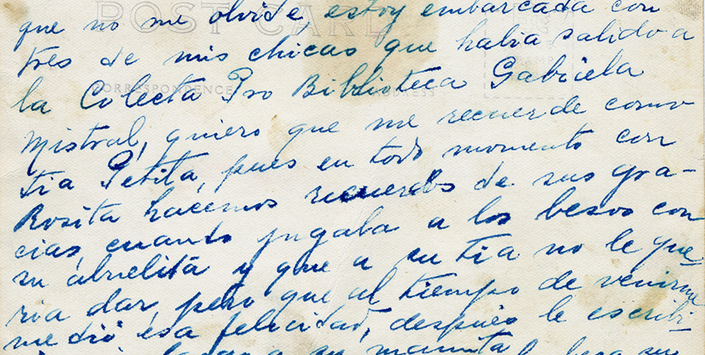 POST CARD
CORRESPONDENCE
que no me olvide, estoy embarcada con
tres de mis chicas que habia salido a
la Colecta Pro Biblioteca Gabriela
Mistral, quiero que me recuerde como
tia Petita, pues en todo momento con
Rosita hacemos recuerdos de sus gra-
cias, cuando jugaba a los besos con
su abuelita y que a su tia no le que-
ria dar, pero que al tiempo de venirme
me dió esa felicidad, después le escribi
a su mamita